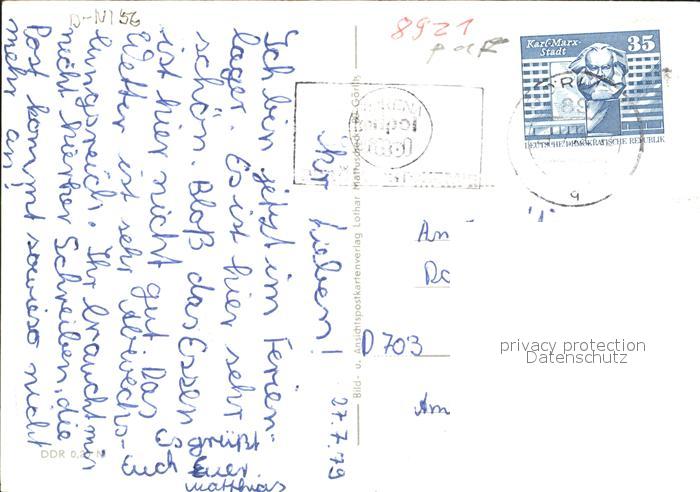 27.7.79
Ihr Lieben!
Ich bin jetzt im Ferien-
lager. Es ist hier sehr
schön. Bloß das Essen
ist hier nicht gut. Das
Wetter ist sehr abwechs-
lungsreich. Ihr braucht mir
nicht hierher Schreiben, die
Post kommt sowieso nicht
mehr an!
Es grüßt
Euch Euer
Matthias
8921
Karl-Marx-
Stadt
35
DEUTSCHE DEMOKRATISCHE REPUBLIK
An
D 703
Am
Bild- u. Ansichtspostkartenverlag Lothar Görlitz
DDR
privacy protection
Datenschutz